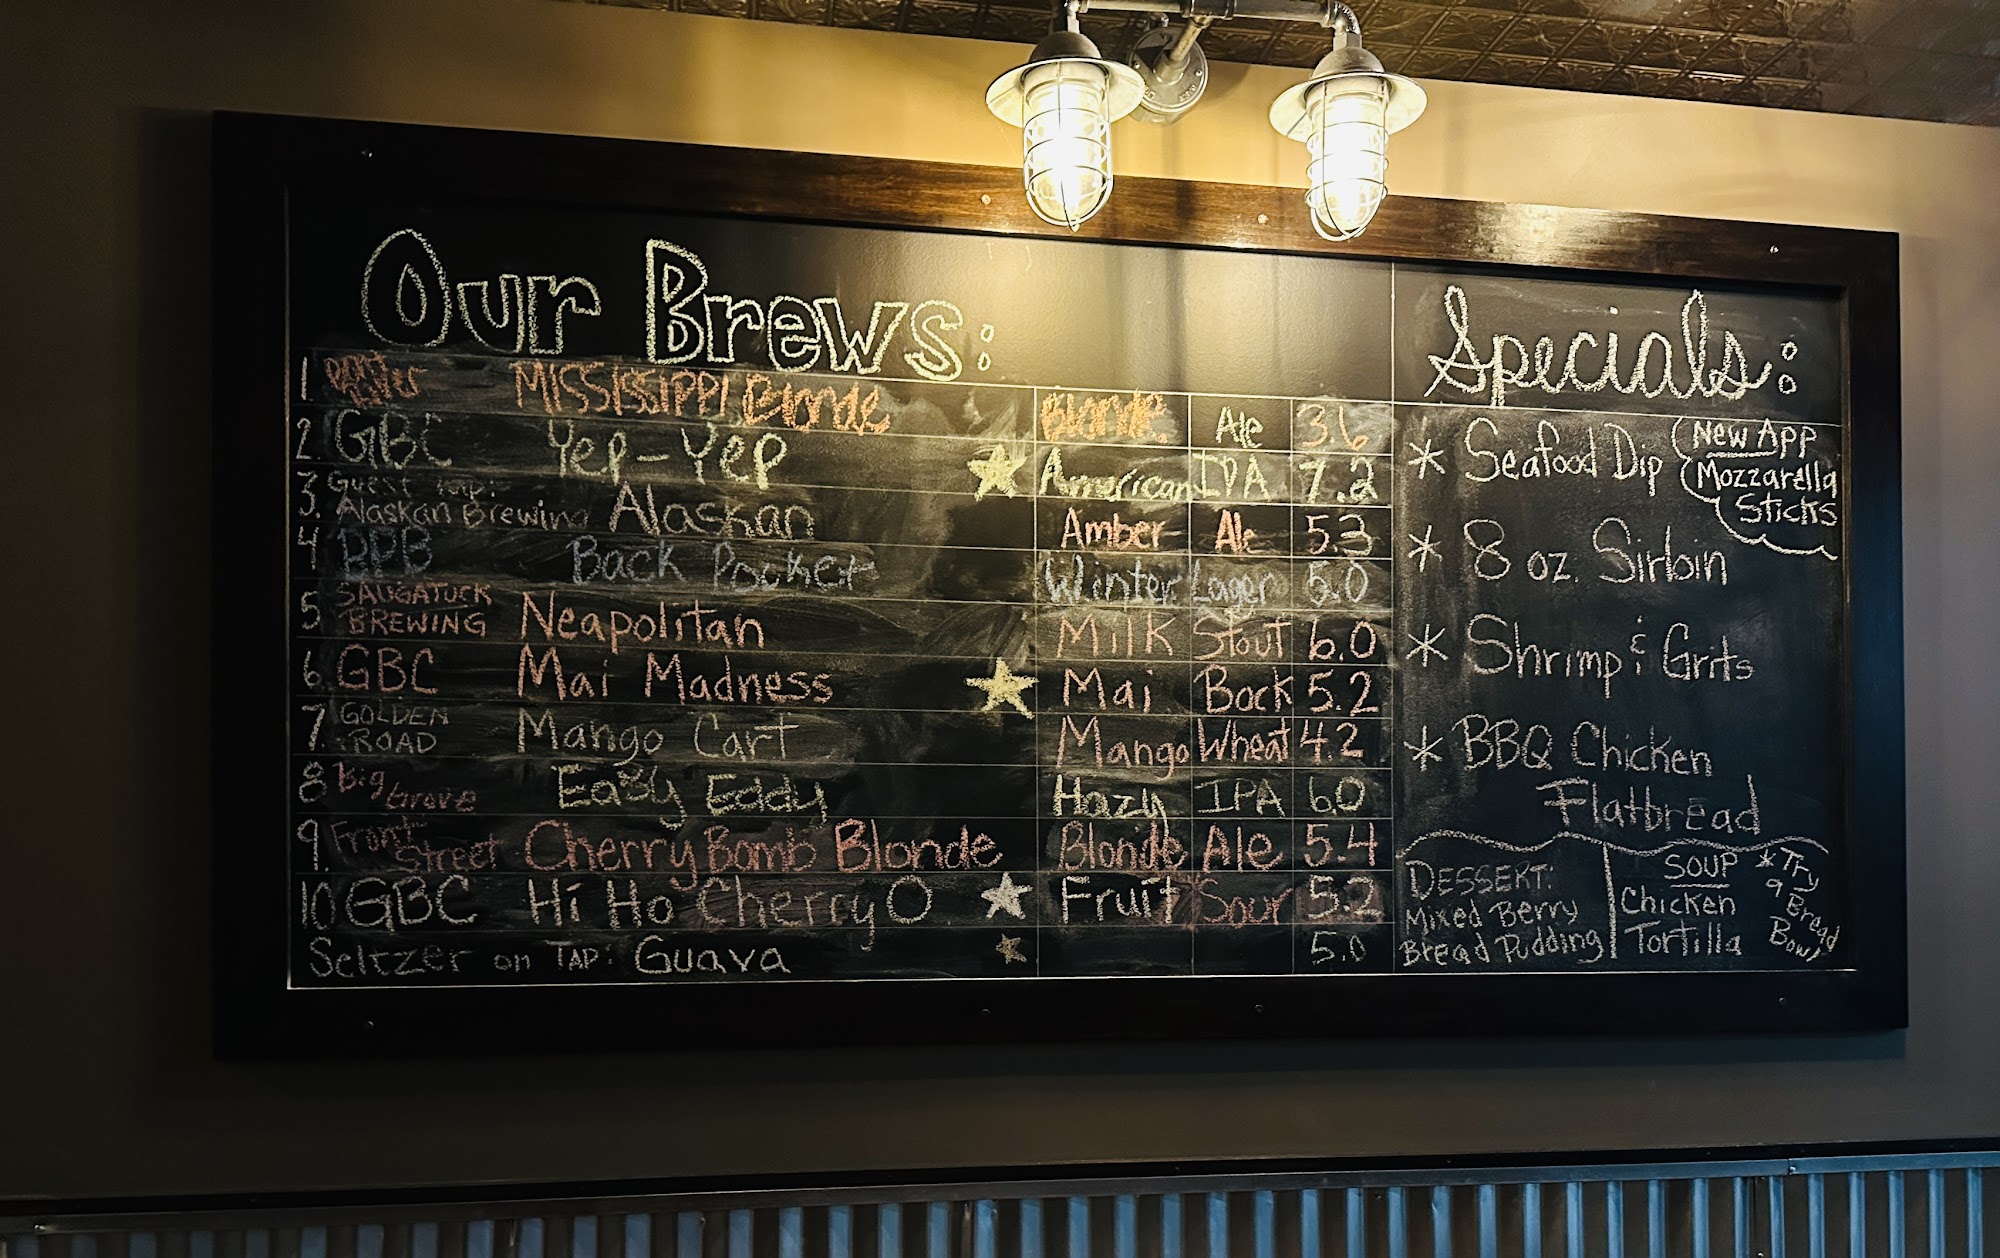 Our Brews:
1. MISSISSIPPI Blonde Blonde Ale 3.6
2. GBC Yep-Yep American IPA 7.2
3. Guest Imp: Alaskan Brewing Alaskan Amber Ale 5.3
4 BPB Back Pocket Winter Lager 5.0
5. SAUGATUCK BREWING Neapolitan Milk Stout 6.0
6. GBC Mai Madness Mai Bock 5.2
7. GOLDEN ROAD Mango Cart Mango Wheat 4.2
8 Big Grove Easy Eddy Hazy IPA 6.0
9. Front Street Cherry Bomb Blonde Blonde Ale 5.4
10 GBC Hi Ho Cherry O Fruit Sour 5.2
Seltzer on TAP: Guava 5.0
Specials:
* Seafood Dip
New App
Mozzarella
Sticks
* 8 oz. Sirloin
* Shrimp & Grits
* BBQ Chicken
Flatbread
DESSERT:
Mixed Berry
Bread Pudding
SOUP
Chicken
Tortilla
* Try
a Bread
Bowl